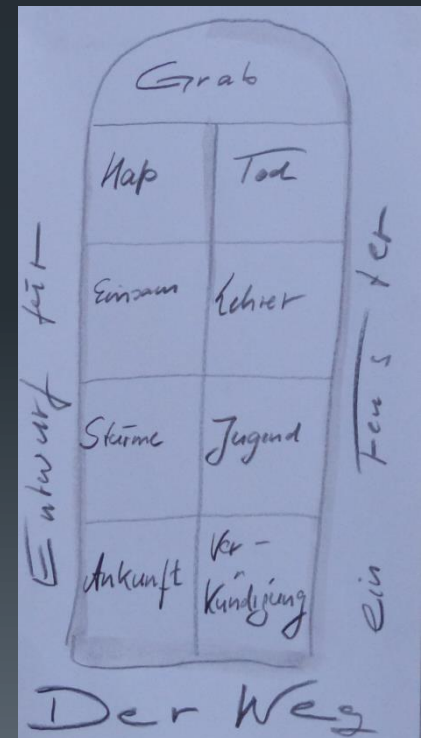 Grab
Haß Tod
Einsam Lehrer
Stürme Jugend
Ankunft Ver-
kündigung
Entwurf für
ein Fenster
Der Weg